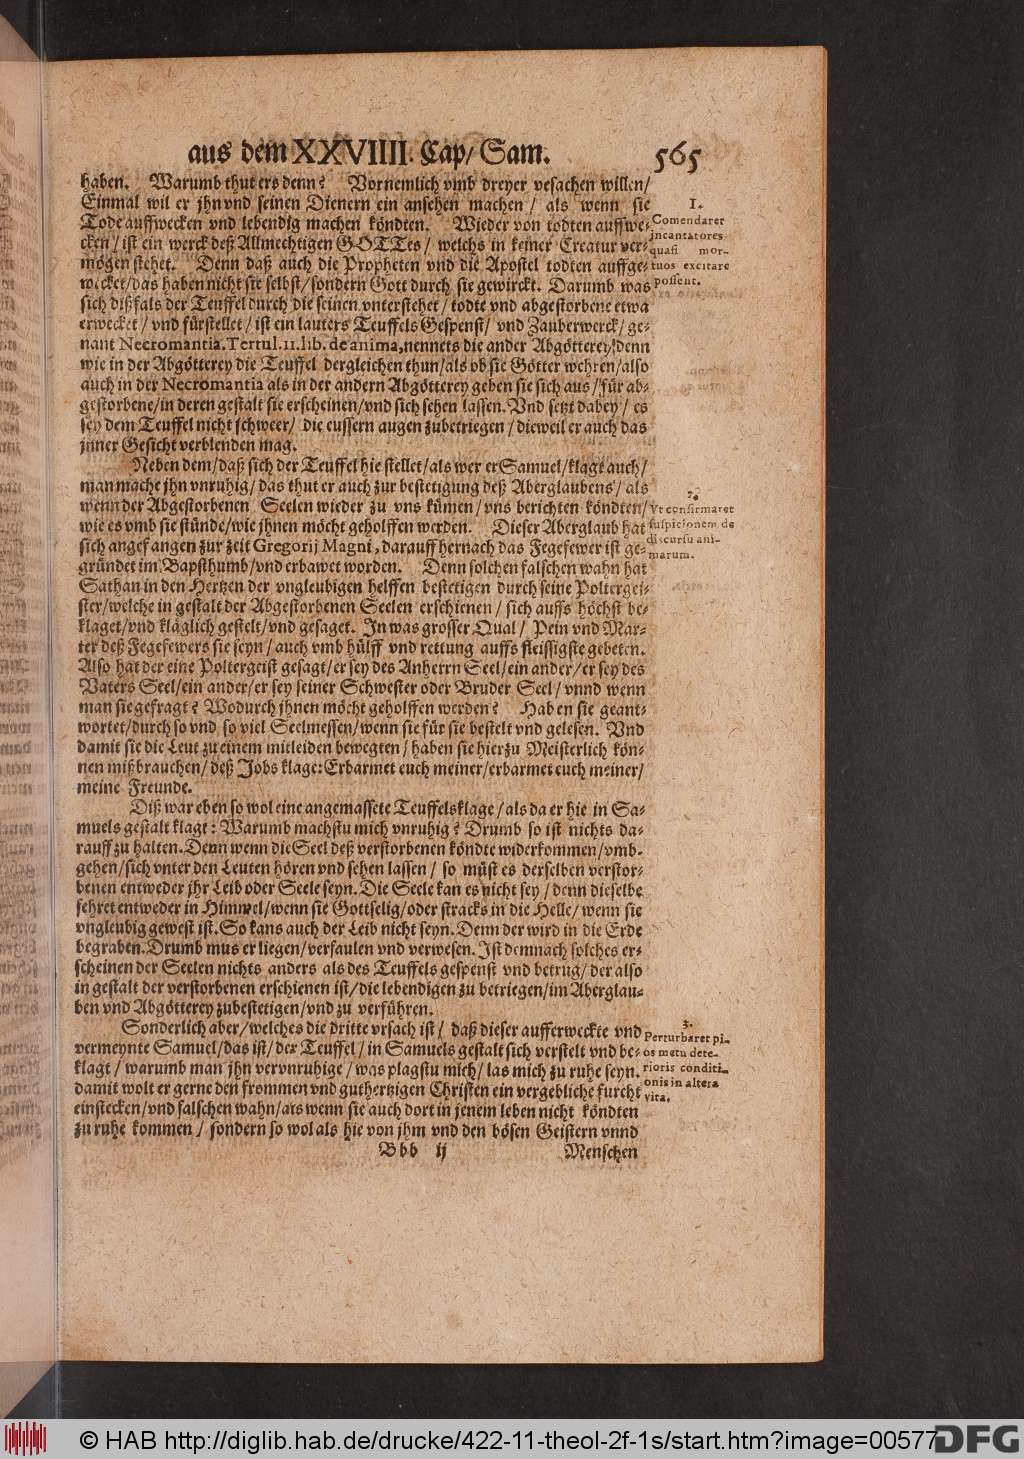 aus dem XXVIIII. Cap/ Sam. 565
haben. Warumb thut ers denn? Vornemlich vmb dreyer vesachen willen/
Einmal wil er jhn vnd seinen Dienern ein ansehen machen/ als wenn sie
Tode auffwecken vnd lebendig machen köndten. Wieder von todten auffwe-
cken/ ist ein werck deß Allmechtigen GOTTes/ welchs in keiner Creatur ver-
mögen stehet. Denn daß auch die Propheten vnd die Apostel todten auffge-
wecket/das haben nicht sie selbst/sondern Gott durch sie gewirckt. Darumb was
sich dißfals der Teuffel durch die seinen vnterstehet/ todte vnd abgestorbene etwa
erwecket/ vnd fürstellet/ ist ein lauters Teuffels Gespenst/ vnd Zauberwerck/ ge-
nant Necromantia. Tertul. 11. lib. de anima, nennets die ander Abgötterey/denn
wie in der Abgötterey die Teuffel dergleichen thun/als ob sie Götter wehren/also
auch in der Necromantia als in der andern Abgötterey geben sie sich aus/ für ab-
gestorbene/in deren gestalt sie erscheinen/vnd sich sehen lassen. Vnd setzt dabey/ es
sey dem Teuffel nicht schweer/ die eussern augen zubetriegen/dieweil er auch das
jnner Gesicht verblenden mag.
Neben dem/daß sich der Teuffel hie stellet/als wer er Samuel/klagt auch/
man mache jhn vnruhig/ das thut er auch zur bestetigung deß Aberglaubens/ als
wenn der Abgestorbenen Seelen wieder zu vns kümen/vns berichten köndten/
wie es vmb sie stünde/wie jhnen möcht geholffen werden. Dieser Aberglaub hat
sich angefangen zur zeit Gregorij Magni, darauff hernach das Fegefewer ist ge-
gründet im Bapsthumb/vnd erbawet worden. Denn solchen falschen wahn hat
Sathan in den Hertzen der vngleubigen helffen bestetigen durch seine Poltergei-
ster/welche in gestalt der Abgestorbenen Seelen erschienen/ sich auffs höchst be-
klaget/vnd kläglich gestelt/vnd gesaget. In was grosser Qual/ Pein vnd Mar-
ter deß Fegefewers sie seyn/ auch vmb hülff vnd rettung auffs fleissigste gebeten.
Also hat der eine Poltergeist gesagt/er sey des Anherrn Seel/ein ander/er sey des
Vaters Seel/ein ander/er sey seiner Schwester oder Bruder Seel/ vnnd wenn
man sie gefragt? Wodurch jhnen möcht geholffen werden? Haben sie geant-
wortet/durch so vnd so viel Seelmessen/wenn sie für sie bestelt vnd gelesen. Vnd
damit sie die Leut zu einem mitleiden bewegten/ haben sie hierzu Meisterlich kön-
nen mißbrauchen/ deß Jobs klage: Erbarmet euch meiner/erbarmet euch meiner/
meine Freunde.
Diß war eben so wol eine angemassete Teuffelsklage/als da er hie in Sa-
muels gestalt klagt: Warumb machstu mich vnruhig? Drumb so ist nichts da-
rauff zu halten. Denn wenn die Seel deß verstorbenen köndte widerkommen/vmb-
gehen/sich vnter den Leuten hören vnd sehen lassen/ so müst es derselben verstor-
benen entweder jhr Leib oder Seele seyn. Die Seele kan es nicht sey/ denn dieselbe
fehret entweder in Himmel/wenn sie Gottselig/oder stracks in die Helle/ wenn sie
vngleubig gewest ist. So kans auch der Leib nicht seyn. Denn der wird in die Erde
begraben. Drumb mus er liegen/verfaulen vnd verwesen. Ist demnach solches er-
scheinen der Seelen nichts anders als des Teuffels gespenst vnd betrug/ der also
in gestalt der verstorbenen erschienen ist/die lebendigen zu betriegen/im Aberglau-
ben vnd Abgötterey zubestetigen/vnd zu verführen.
Sonderlich aber/welches die dritte vrsach ist/ daß dieser aufferweckte vnd
vermeynte Samuel/das ist/ der Teuffel/ in Samuels gestalt sich verstelt vnd be-
klagt/ warumb man jhn vervnruhige/ was plagstu mich/ las mich zu ruhe seyn.
damit wolt er gerne den frommen vnd guthertzigen Christen ein vergebliche furcht
einstecken/vnd falschen wahn/als wenn sie auch dort in jenem leben nicht köndten
zu ruhe kommen/ sondern so wol als hie von jhm vnd den bösen Geistern vnnd
Bbb ij Menschen
1.
Comendaret
incantatores
quasi mor-
tuos excitare
possent.
2.
Vt confirmaret
suspicionem de
discursu ani-
marum.
3.
Perturbaret pi-
os metu dete-
rioris conditi-
onis in altera
vita.
© HAB http://diglib.hab.de/drucke/422-11-theol-2f-1s/start.htm?image=00577
DFG